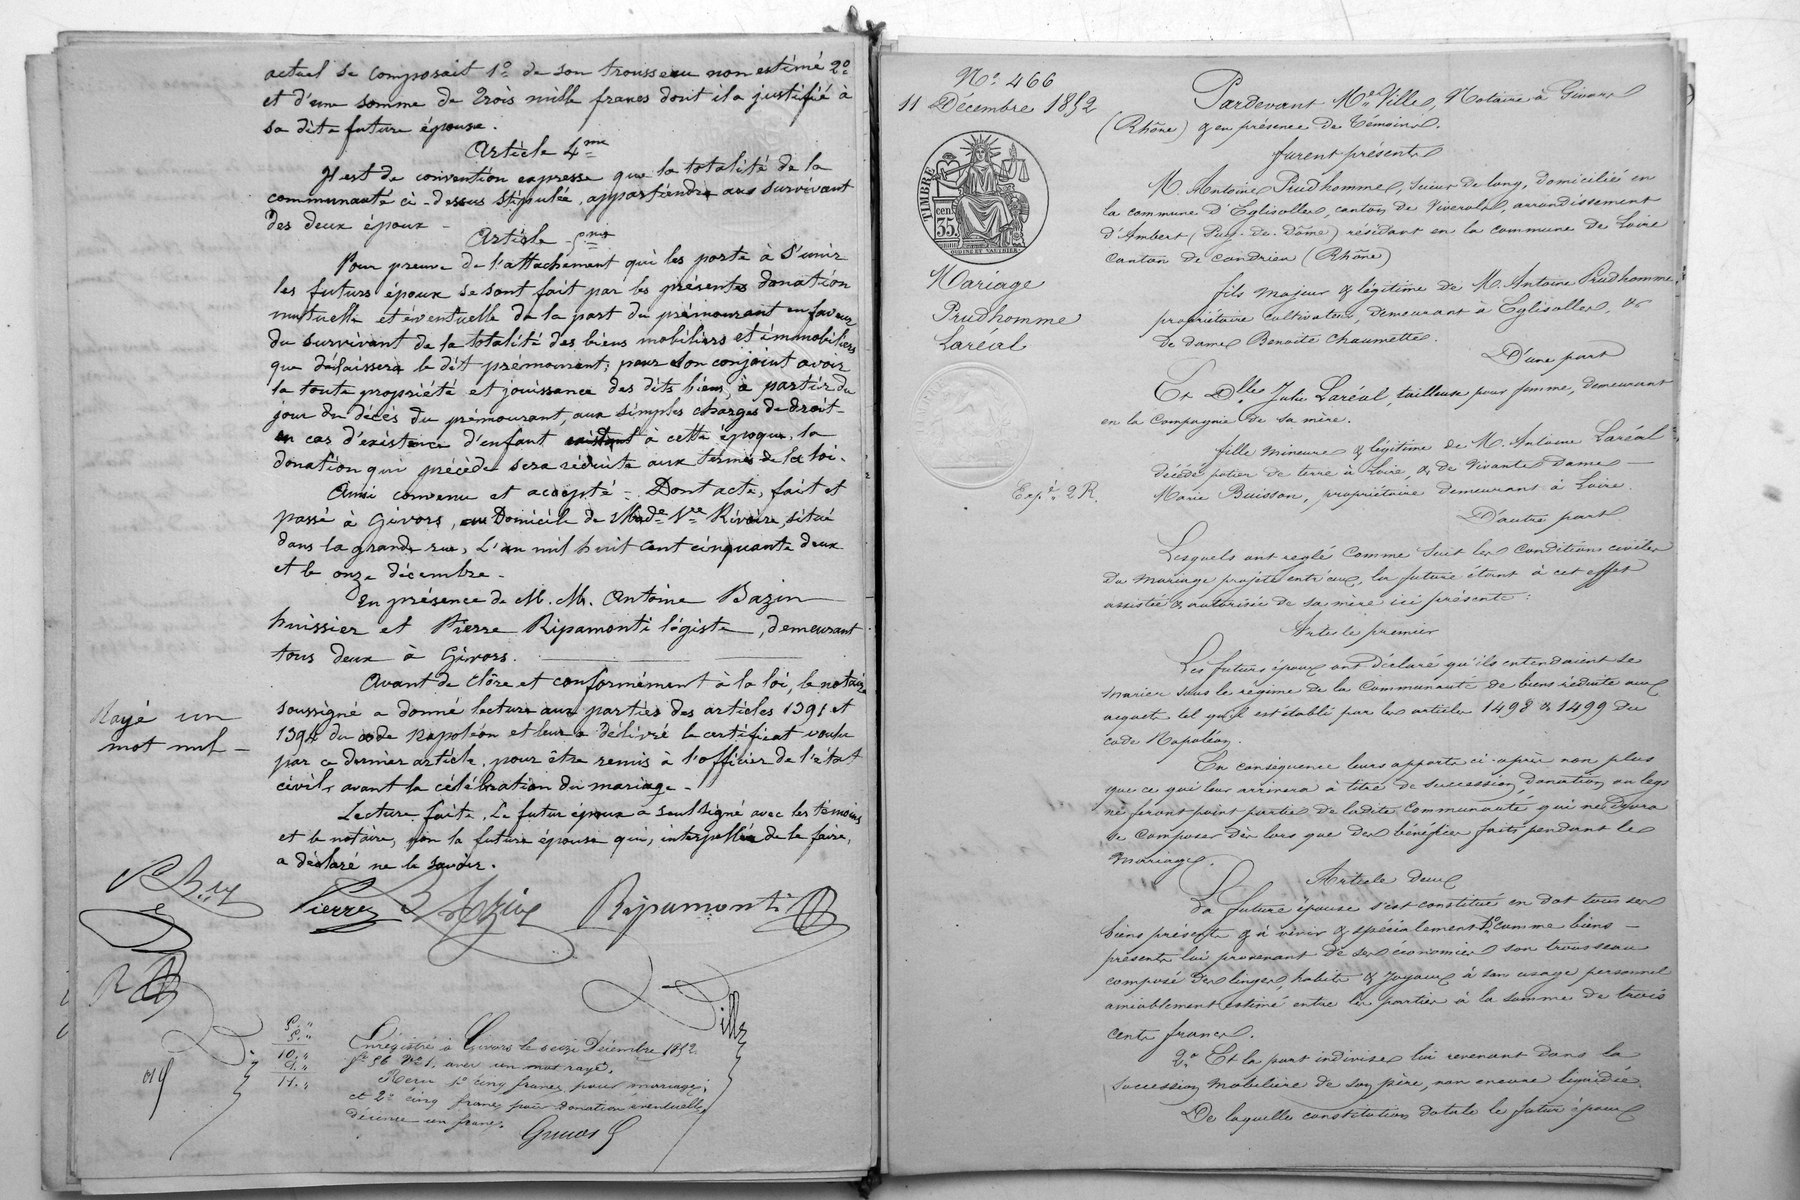 actuel se composait 1º de son trousseau non estimé 2º
et d'une somme de trois mille francs dont il a justifié à
sa dite future épouse.
Article 4me
Il est de convention expresse que la totalité de la
communauté ci-dessus stipulée, appartiendra aux survivant
des deux époux -
Article 5me
Pour preuve de l'attachement qui les porte à s'unir
les futurs époux se sont fait par les présentes donation
mutuelle et éventuelle de la part du prémourant en faveur
du survivant de la totalité des biens mobiliers et immobiliers
que délaissera le dit prémourant; pour son conjoint avoir
la toute propriété et jouissance des dits biens, à partir du
jour du décès du prémourant, aux simples charges de droit -
en cas d'existence d'enfant à cette époque, la
donation qui précède sera réduite aux termes de la loi.
Ainsi convenu et accepté - Dont acte, fait et
passé à Givors, au Domicile de Made Vve Rivoire, situé
dans la grande rue, L'an mil huit cent cinquante deux
et le onze décembre -
En présence de M. M. Antoine Bazin
huissier et Pierre Ripamonti légiste, demeurant
tous deux à Givors.
Avant de clôre et conformément à la loi, le notaire
soussigné a donné lecture aux parties des articles 1391 et
1394 du code Napoléon et leur a délivré le certificat voulu
par ce dernier article, pour être remis à l'officier de l'état
civil, avant la célébration du mariage -
Rayé un
mot nul -
Lecture faite, Le futur époux a seul signé avec les témoins
et le notaire, non la future épouse qui, interpellée de le faire,
a déclaré ne le savoir.
Pierre Bazin Ripamonti
Ville
5. "
5. "
10. "
1. "
11. "
Enregistré à Givors le seize Décembre 1852
fº 56 Nº 1, avec un mot rayé.
Reçu 1º cinq francs pour mariage;
et 2º cinq francs pour donation éventuelle,
décime un franc.
Nº 466
11 Décembre 1852
TIMBRE
35 cen
Mariage
Prudhomme
Laréal
Expé 2 R.
Pardevant Me Ville, Notaire à Givors
(Rhône) & en présence de témoins.
furent présents
M. Antoine Prudhomme, scieur de long, domicilié en
la commune d'Eglisolles, canton de Viverols, arrondissement
d'Ambert (Puy-de-Dôme) résidant en la commune de Loire
canton de Condrieu (Rhône)
fils majeur & légitime de M. Antoine Prudhomme,
propriétaire cultivateur, demeurant à Eglisolles, &
de dame Benoîte Chaumette.
D'une part
Et Dlle Julie Laréal, tailleuse pour femme, demeurant
en la compagnie de sa mère.
fille mineure & légitime de M. Antoine Laréal
décédé potier de terre à Loire, & de vivante Dame
Marie Buisson, propriétaire demeurant à Loire.
D'autre part
Lesquels ont réglé comme suit les conditions civiles
du mariage projeté entr'eux, la future étant à cet effet
assistée & autorisée de sa mère ici présente :
Article premier
Les futurs époux ont déclaré qu'ils entendaient se
marier sous le régime de la Communauté de biens réduite aux
acquets tel qu'il est établi par les articles 1498 & 1499 du
code Napoléon.
En conséquence leurs apports ci-après non plus
que ce qui leur arrivera à titre de succession, donation ou legs
ne feront point partie de ladite Communauté qui ne devra
se composer dès lors que des bénéfices faits pendant le
mariage.
Article deux
La future épouse s'est constitué en dot tous ses
biens présents & à venir & spécialement 1º comme biens
présents lui provenant de ses économies son trousseau
composé des linges, habits & joyaux à son usage personnel
amiablement estimé entre les parties à la somme de trois
cents francs.
2º Et la part indivise lui revenant dans la
succession mobilière de son père, non encore liquidée.
De laquelle constitution dotale le futur époux